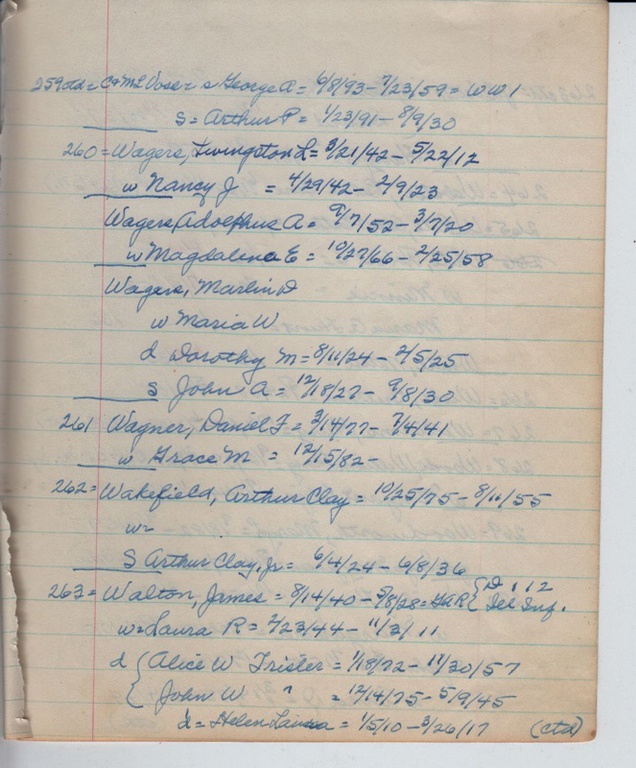 259 ctd = C & ML Vose = s George A = 6/8/93 - 7/23/59 = WW 1
S = Arthur P = 1/23/91 - 8/9/30
260 = Wagers, Livingston L = 3/21/42 - 5/22/12
w Nancy J = 4/29/42 - 2/9/23
Wagers, Adolphus A = 9/7/52 - 3/7/20
w Magdalena E = 10/27/66 - 2/25/58
Wagers, Marlin D
w Maria W.
d Dorothy M = 8/11/24 - 2/5/25
S John A = 12/18/27 - 9/8/30
261 Wagner, Daniel F = 3/14/77 - 7/4/41
w Grace M = 12/15/82 -
262 = Wakefield, Arthur Clay = 10/25/75 - 8/11/55
w =
S Arthur Clay, Jr = 6/4/24 - 6/8/36
263 = Walton, James = 8/14/40 - 5/8/28 = GAR { D, 1, 12
Del Inf.
w = Laura R = 2/23/44 - 11/3/11
d { Alice W Trisler = 1/18/72 - 11/30/57
{ John W " = 12/14/75 - 5/9/45
d = Helen Laura = 1/5/10 - 3/26/17 (ctd)